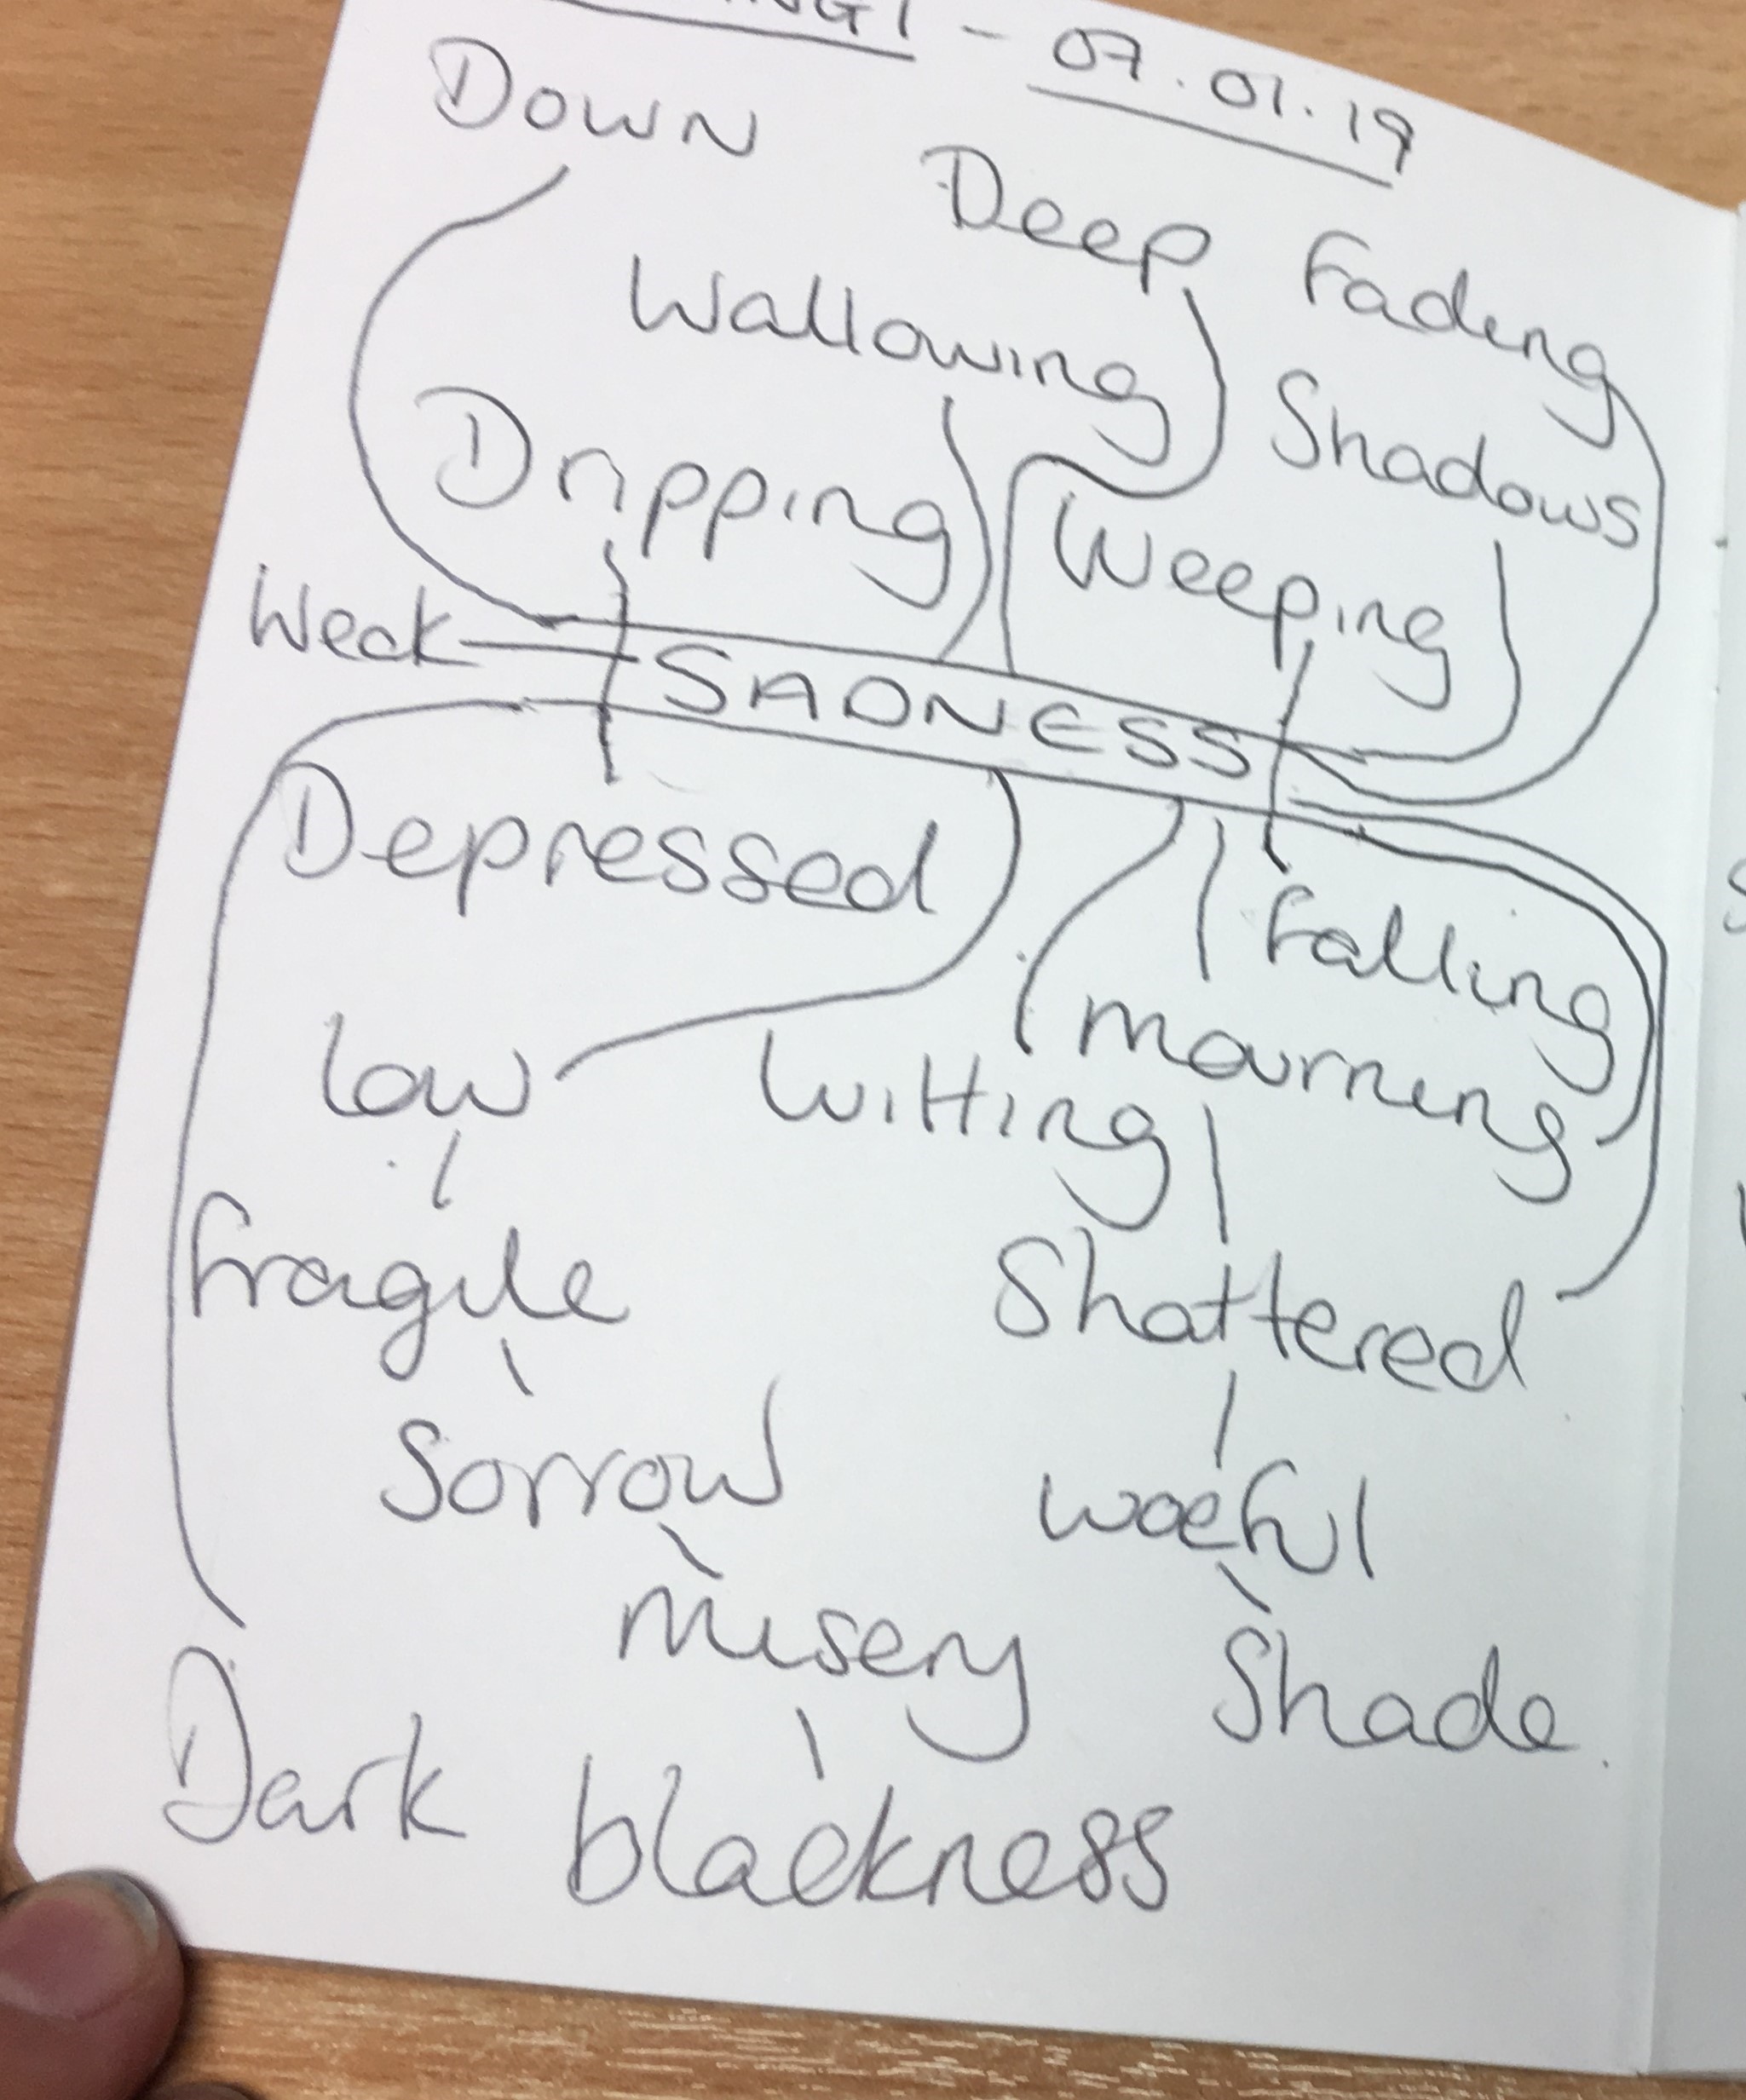 07.01.19
DOWN
Deep
Fading
Wallowing
Shadows
Dripping
Weeping
Weak
SADNESS
Depressed
Falling
Mourning
Low
Wilting
Fragile
Shattered
Sorrow
Woeful
Misery
Shade
Dark
blackness